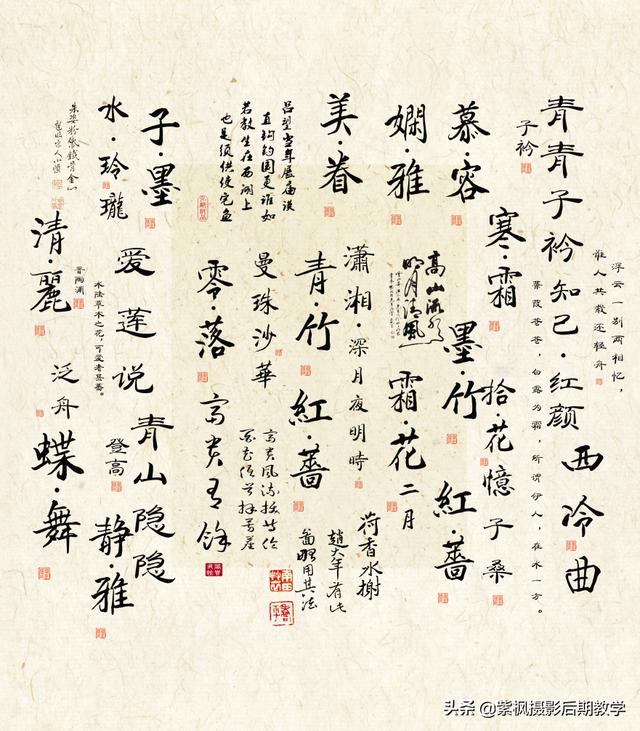 浮云一别两相忆，
谁人共载还轻舟
青青子衿
子衿
知己·红颜
西冷曲
蒹葭苍苍，白露为霜，所谓伊人，在水一方。
慕容
寒·霜
拾·花憶
子桑
嫻·雅
高山流水
明月清風
墨·竹
紅·薔
霜·花
二月
美·眷
瀟湘·深月夜明時
荷香水榭
趙大年有此
青·竹
紅·薔
曼珠沙華
零·落
富贵有馀
子·墨
水·玲瓏
爱莲说
青山隐隐
水陆草木之花，可爱者甚蕃。
晋陶渊
登高
静·雅
清·麗
泛舟
蝶·舞
头条 @紫枫摄影后期教学